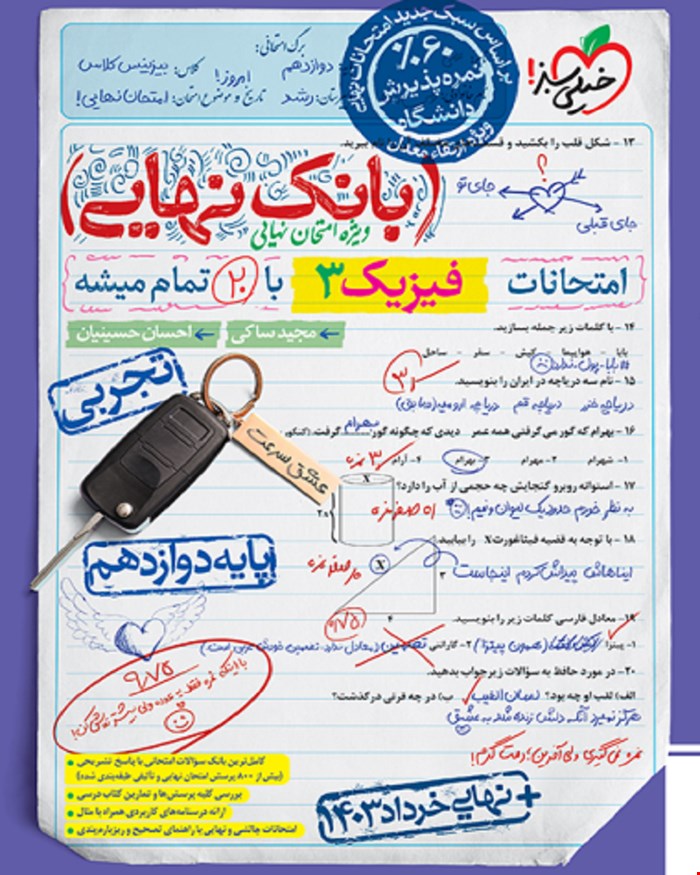 خیلی سبز!
براساس سبک جدید امتحانات نهایی
۶۰٪
نمره پذیرش
دانشگاه
ویژه ارتقاء معدل
برگ امتحانی:
دوازدهم
کلاس: بیزینس کلاس
امروز!
رشد
تاریخ و موضوع امتحان: امتحان نهایی!
۱۳ - شکل قلب را بکشید و
ببرید.
؟
جای تو
جای قبلی
(بانک نهایی)
ویژه امتحان نهایی
امتحانات فیزیک ۳ با ۲۰ تمام میشه
مجید ساکی
احسان حسینیان
۱۴ - با کلمات زیر جمله بسازید.
بابا - هواپیما - کیش - سفر - ساحل
بابا پول ندارد
تجربی
۱۵ - نام سه دریاچه در ایران را بنویسید.
دریاچه خزر دریاچه قم دریاچه ارومیه (سابق)
۱۶ - بهرام که گور می‌گرفتی همه عمر دیدی که چگونه گور بهرام گرفت.
۱- شهرام ۲- مهرام ۳- بهرام ۴- آرام
۳ نمره
عشق سرعت
۱۷ - استوانه روبرو گنجایش چه حجمی از آب را دارد؟
به نظر خودم حدود یک لیوان و نیم!
X
۱۸ - با توجه به قضیه فیثاغورث X را بیابید.
ایناهاش پیداش کردم اینجاست
X
۳
۴
پایه دوازدهم
۱۹- معادل فارسی کلمات زیر را بنویسید.
۹/۷۵
۱- پیتزا
(همون پیتزا)
۲- گارانتی تضمین
۲۰- در مورد حافظ به سؤالات زیر جواب بدهید.
الف) لقب او چه بود؟ لسان الغیب ب) در چه قرنی درگذشت؟
هرگز نمیرد آنکه دلش زنده شد به عشق
نمره نمی‌گیری ولی آفرین؛ دمت گرم!
۹/۷۵
کامل‌ترین بانک سؤالات امتحانی با پاسخ تشریحی
(بیش از ۸۰۰ پرسش امتحان نهایی و تألیفی طبقه‌بندی شده)
بررسی کلیه پرسش‌ها و تمارین کتاب درسی
ارائه درسنامه‌های کاربردی همراه با مثال
امتحانات چالشی و نهایی با راهنمای تصحیح و ریزبارم‌بندی
+ نهایی خرداد ۱۴۰۳